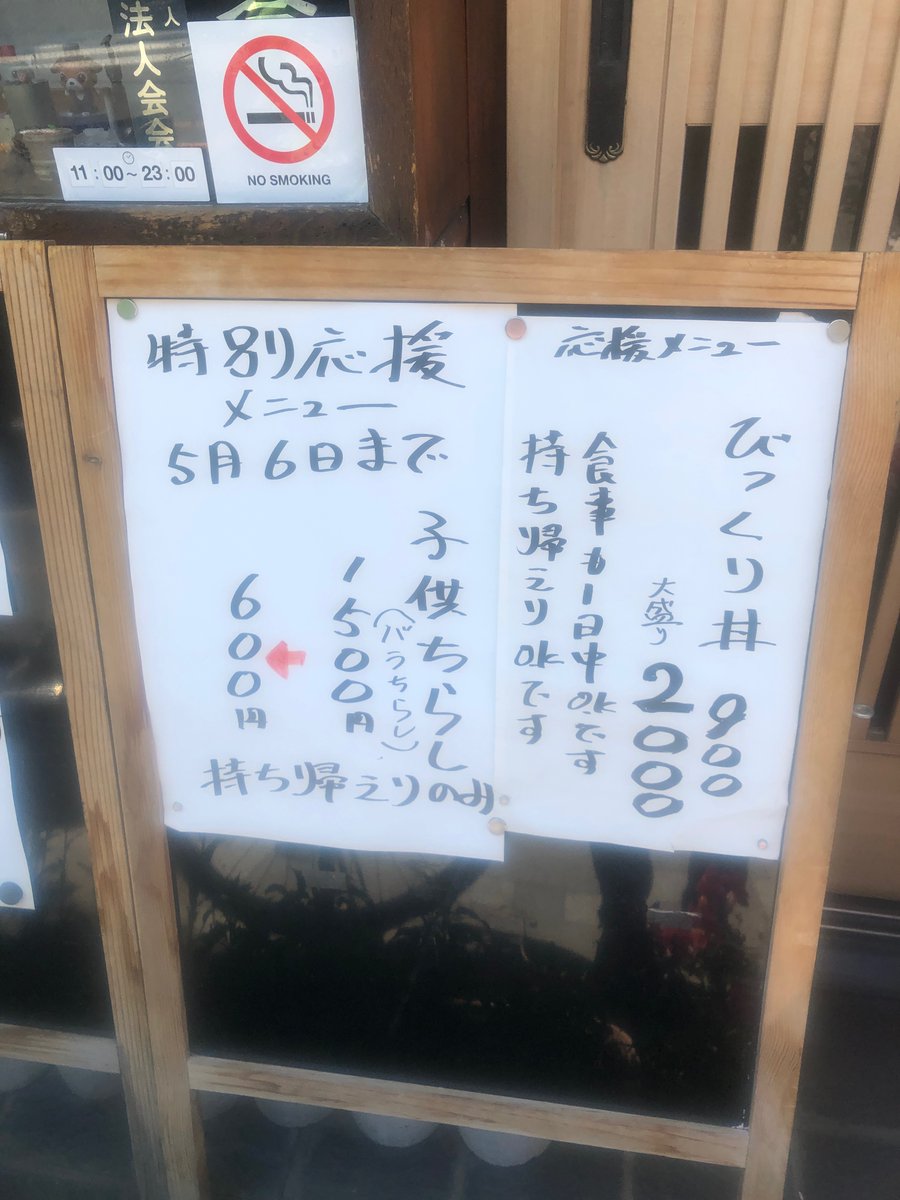 人
法人会会
11:00~23:00
NO SMOKING
特別応援
メニュー
5月6日まで
子供ちらし
(バラちらし)
1500円
600円
持ち帰えりのみ
応援メニュー
びっくり丼 900
大盛り 2000
食事も1日中okです
持ち帰えりokです